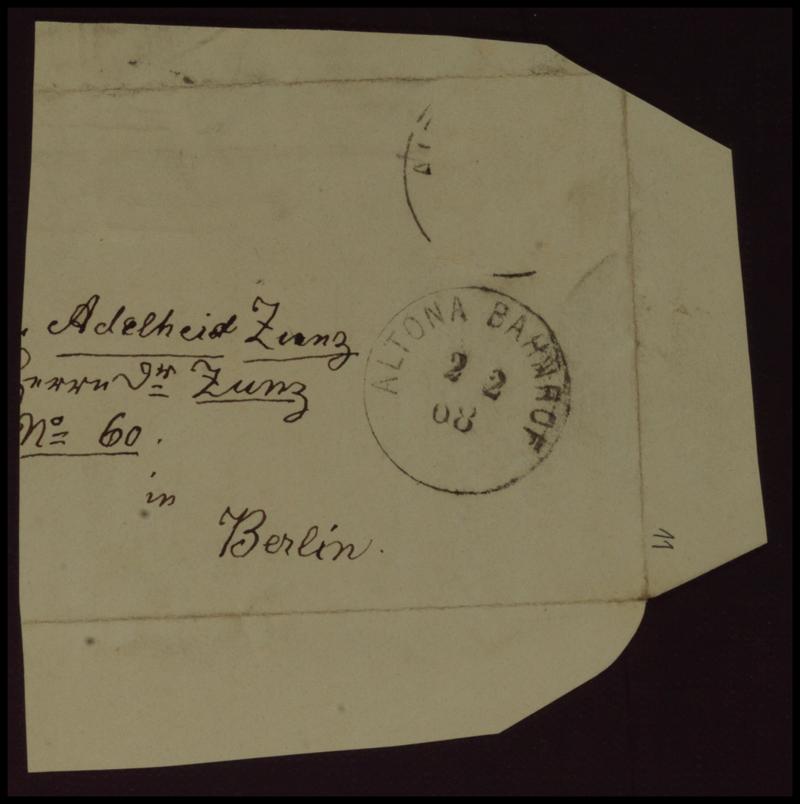 Adelheid Zunz
Herrn Dr Zunz
No 60.
in
Berlin.
ALTONA BAHNHOF
2 2
68
11